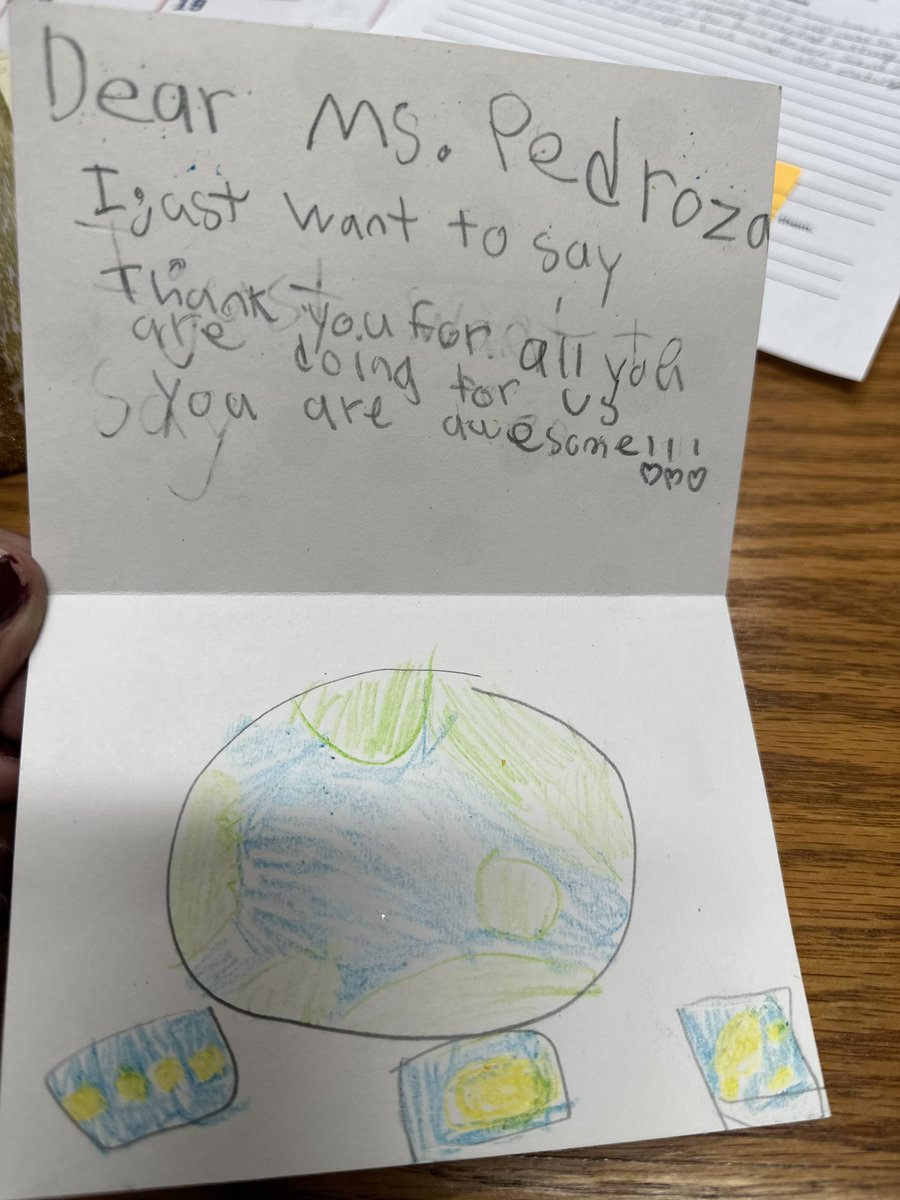 19
Dear Ms. Pedroza
I just want to say
Thank you for all you
are doing for us
You are awesome!!!